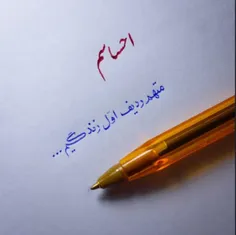 احساسم
متهم ردیف اول زندگیم...